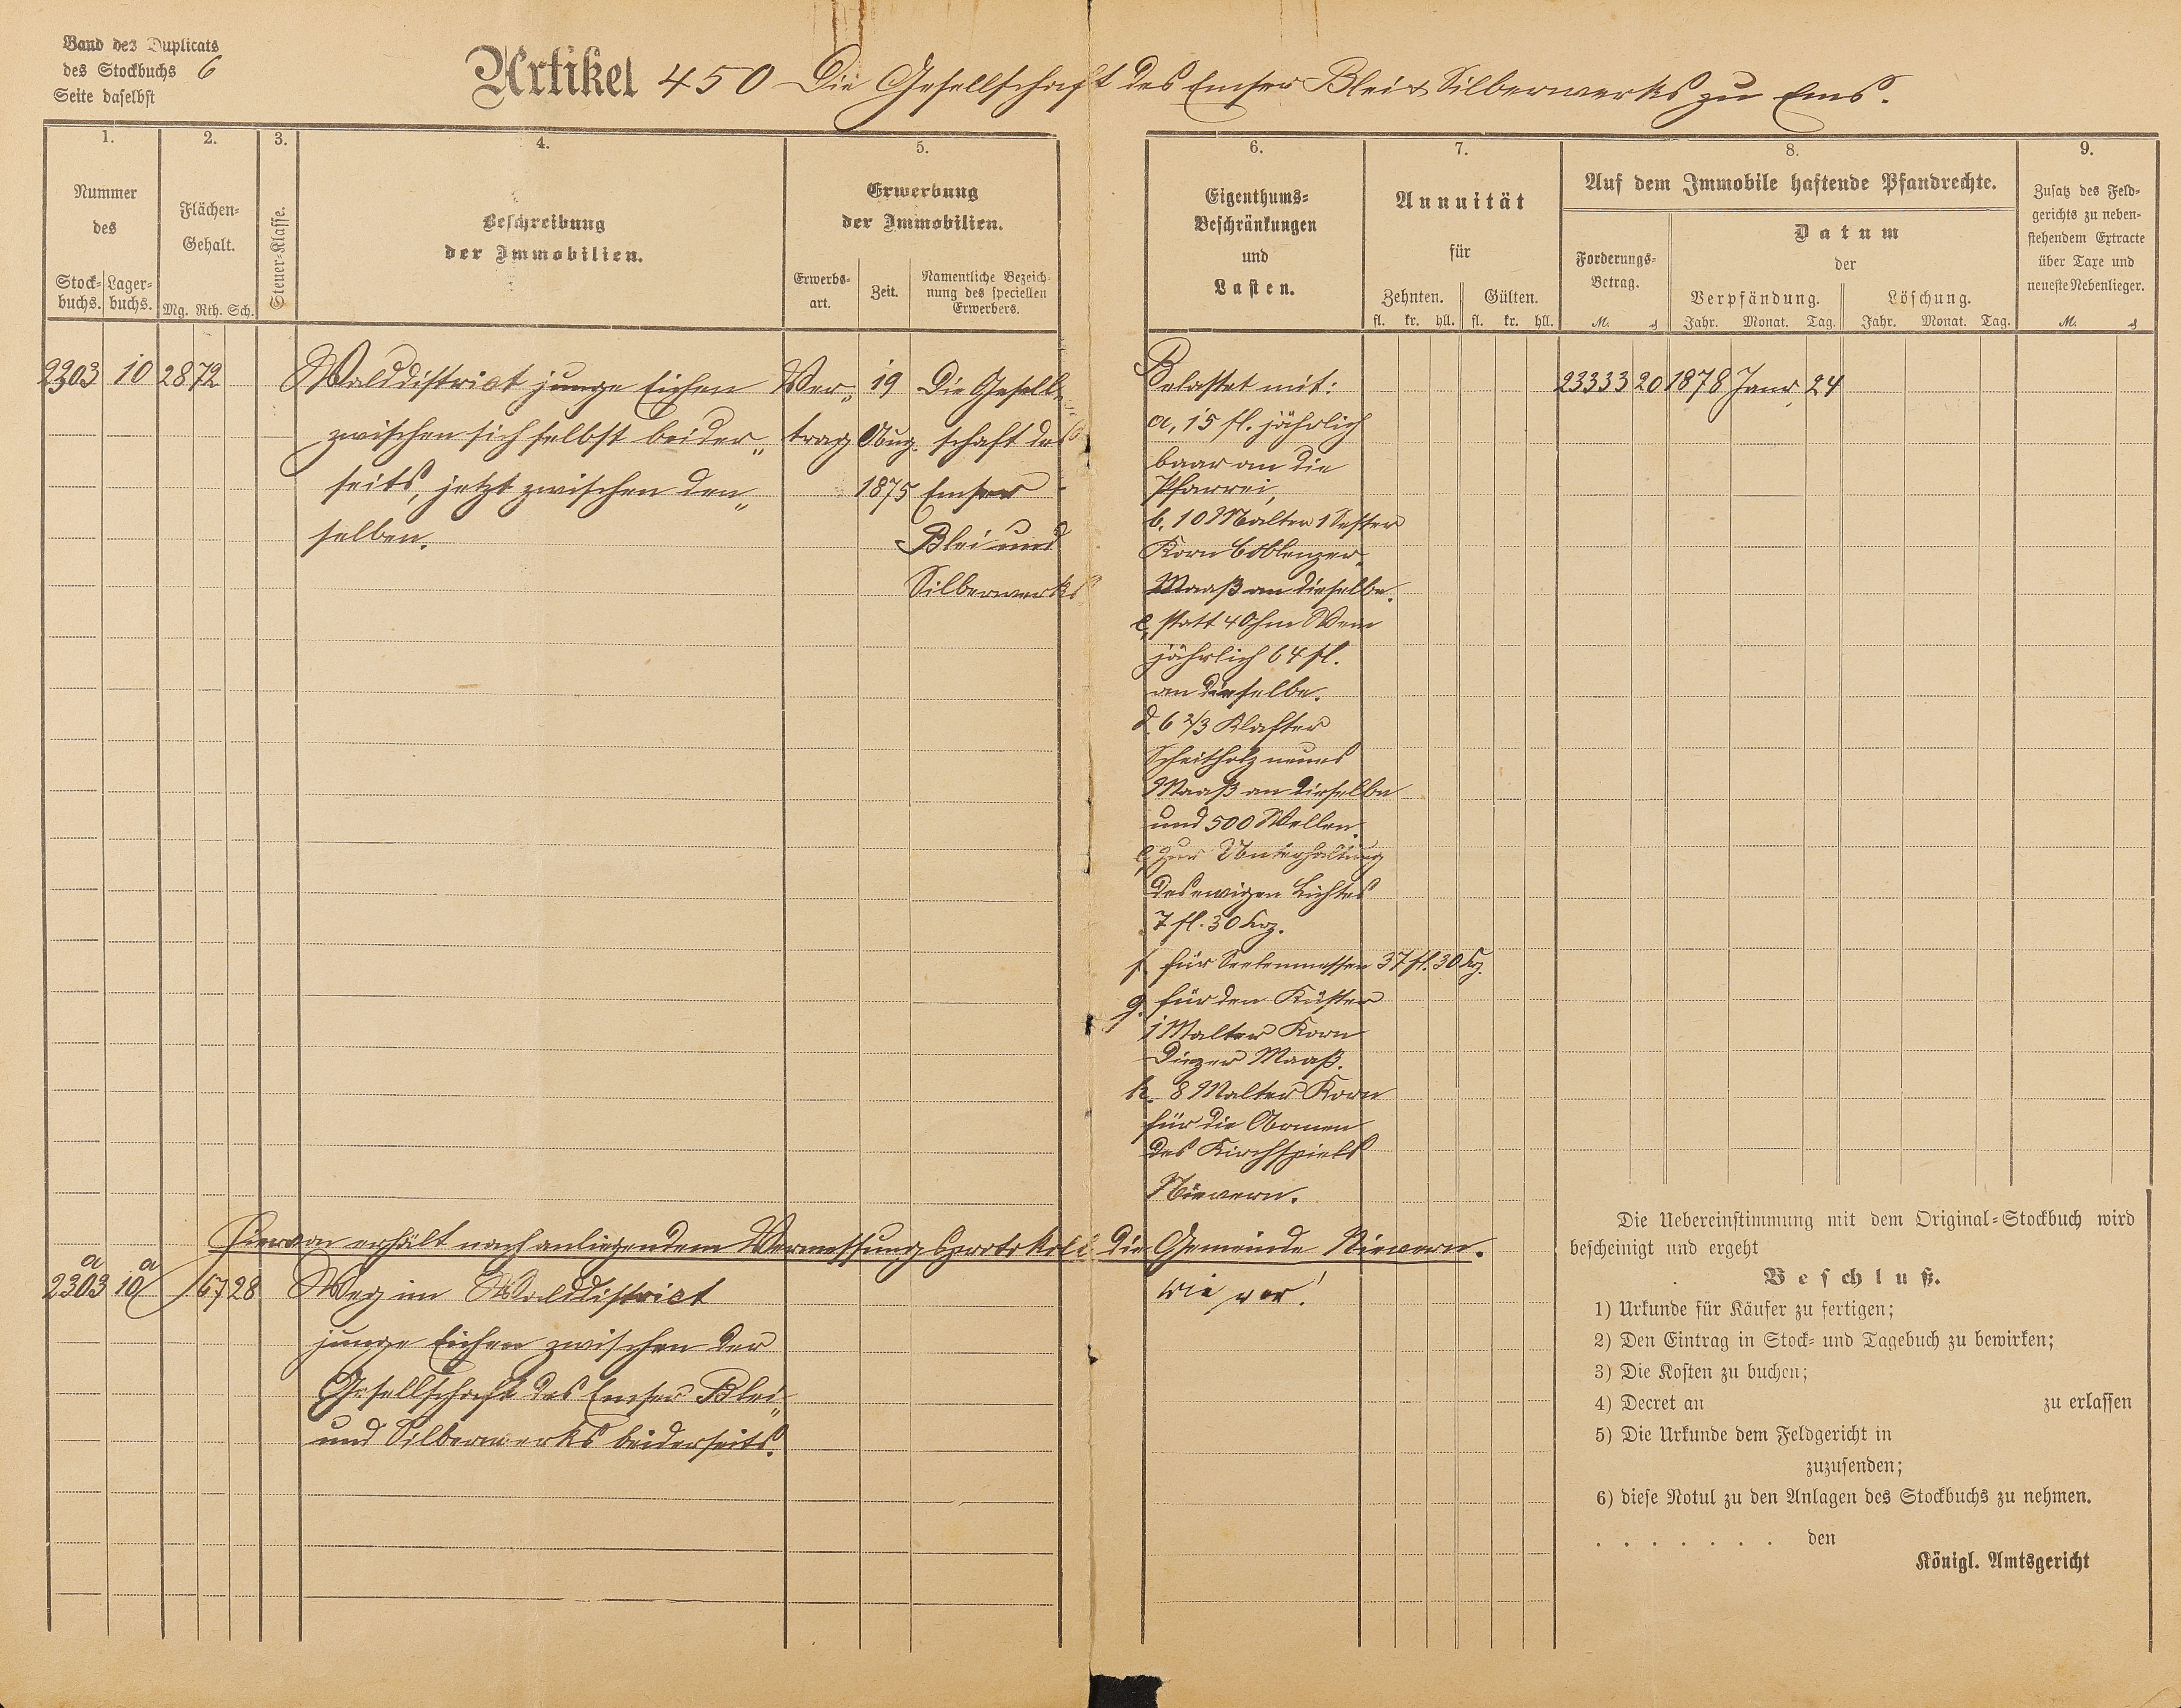 Band des Duplicats
des Stockbuchs 6
Seite daselbst
Artikel 450 Die Gesellschaft des Emser Blei & Silberwerks zu Ems.
1.
Nummer
des
Stock-
buchs.
Lager-
buchs.
2.
Flächen-
Gehalt.
Mg. Rth. Sch.
3.
Steuer-Klasse.
4.
Beschreibung
der Immobilien.
5.
Erwerbung
der Immobilien.
Erwerbs-
art.
Zeit.
Namentliche Bezeich-
nung des speciellen
Erwerbers.
6.
Eigenthums-
Beschränkungen
und
Lasten.
7.
Annuität
für
Zehnten. Gülten.
fl. kr. hll. fl. kr. hll.
8.
Auf dem Immobile haftende Pfandrechte.
Forderungs-
Betrag.
M. ₰
Datum
der
Verpfändung. Löschung.
Jahr. Monat. Tag. Jahr. Monat. Tag.
9.
Zusatz des Feld-
gerichts zu neben-
stehendem Extracte
über Taxe und
neueste Nebenlieger.
M. ₰
2303 10 28 72
Walddistrict junge Eichen
zwischen sich selbst beider„
seits, jetzt zwischen den„
selben.
Ver„
trag
19
Aug.
1875
Die Gesell„
schaft des
Emser
Blei und
Silberwerks
Belastet mit:
a, 15 fl. jährlich
baar an die
Pfarrei,
b. 10 Malter 1 Sester
Korn Coblenzer„
Maaß an dieselbe.
c, statt 4 Ohm Wein
jährlich 64 fl.
an dieselbe.
d. 6 2/3 Klafter
Scheitholz neues
Maaß an dieselbe
und 500 Wellen.
e, Zur Unterhaltung
des ewigen Lichtes
7 fl. 30 krz.
f. für Seelenmessen 37 fl. 30 krz.
g. für den Küster
1 Malter Korn
Diezer Maaß.
h. 8 Malter Korn
für die Armen
des Kirchspiels
Nievern.
23333 20 1878 Janr. 24
Hiervon erhält nach anliegendem Vermessungsprotokoll die Gemeinde Nievern.
a a
2303 10 67 28
Weg im Walddistrict
junge Eichen zwischen der
Gesellschaft des Emser Blei„
und Silberwerks beiderseits.
wie vor!
Die Uebereinstimmung mit dem Original-Stockbuch wird
bescheinigt und ergeht
Beschluß.
1) Urkunde für Käufer zu fertigen;
2) Den Eintrag in Stock- und Tagebuch zu bewirken;
3) Die Kosten zu buchen;
4) Decret an zu erlassen
5) Die Urkunde dem Feldgericht in
zuzusenden;
6) diese Notul zu den Anlagen des Stockbuchs zu nehmen.
. . . . . . . den
Königl. Amtsgericht